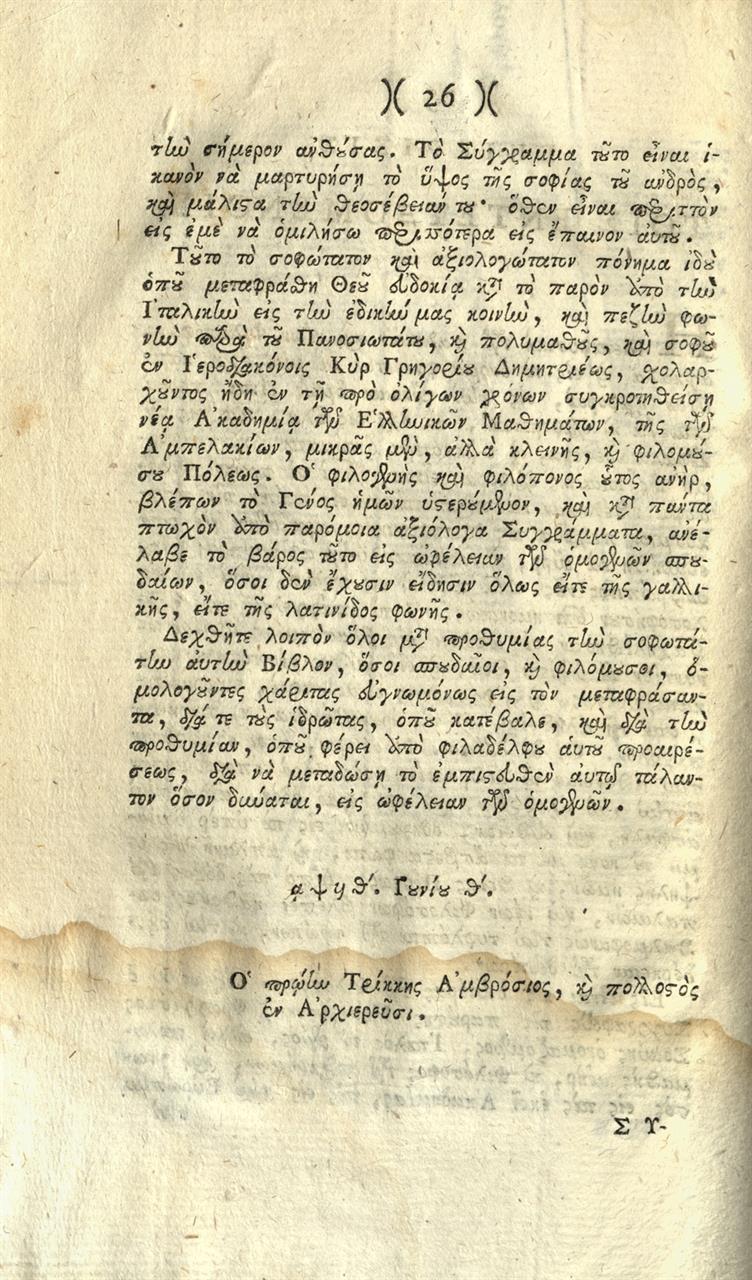 )( 26 )(
τὴν σήμερον ἀνθούσας. Τὸ Σύγγραμμα τοῦτο εἶναι ἱ-
κανὸν νὰ μαρτυρήσῃ τὸ ὕψος τῆς σοφίας τοῦ ἀνδρὸς,
καὶ μάλιστα τὴν θεοσέβειάν του· ὅθεν εἶναι περιττὸν
εἰς ἐμὲ νὰ ὁμιλήσω περισσότερα εἰς ἔπαινον αὐτοῦ.
Τοῦτο τὸ σοφώτατον καὶ ἀξιολογώτατον πόνημα ἰδοὺ
ὁποῦ μεταφράσθη Θεοῦ εὐδοκίᾳ κατὰ τὸ παρὸν ἀπὸ τὴν
Ἰταλικὴν εἰς τὴν ἐδικήν μας κοινὴν, καὶ πεζὴν φω-
νὴν παρὰ τοῦ Πανοσιωτάτου, καὶ πολυμαθοῦς, καὶ σοφοῦ
ἐν Ἱεροδιακόνοις Κὺρ Γρηγορίου Δημητριέως, σχολαρ-
χοῦντος ἤδη ἐν τῇ πρὸ ὀλίγων χρόνων συγκροτηθείσῃ
νέᾳ Ἀκαδημίᾳ τῶν Ἑλληνικῶν Μαθημάτων, τῆς τῶν
Ἀμπελακίων, μικρᾶς μὲν, ἀλλὰ κλεινῆς, καὶ φιλομού-
σου Πόλεως. Ὁ φιλογενὴς καὶ φιλόπονος οὗτος ἀνὴρ,
βλέπων τὸ Γένος ἡμῶν ὑστερούμενον, καὶ κατὰ πάντα
πτωχὸν ἀπὸ παρόμοια ἀξιόλογα Συγγράμματα, ἀνέ-
λαβε τὸ βάρος τοῦτο εἰς ὠφέλειαν τῶν ὁμογενῶν σπου-
δαίων, ὅσοι δὲν ἔχουσιν εἴδησιν ὅλως εἴτε τῆς γαλλι-
κῆς, εἴτε τῆς λατινίδος φωνῆς.
Δεχθῆτε λοιπὸν ὅλοι μετὰ προθυμίας τὴν σοφωτά-
την αὐτὴν Βίβλον, ὅσοι σπουδαῖοι, καὶ φιλόμουσοι, ὁ-
μολογοῦντες χάριτας εὐγνωμόνως εἰς τὸν μεταφράσαν-
τα, διά τε τοὺς ἱδρῶτας, ὁποῦ κατέβαλε, καὶ διὰ τὴν
προθυμίαν, ὁποῦ φέρει ἀπὸ φιλαδέλφου αὑτοῦ προαιρέ-
σεως, διὰ νὰ μεταδώσῃ τὸ ἐμπιστευθὲν αὐτῷ τάλαν-
τον ὅσον δύναται, εἰς ὠφέλειαν τῶν ὁμογενῶν.
͵αψϟθʹ. Ἰουνίου θʹ.
Ὁ πρώην Τρίκκης Ἀμβρόσιος, καὶ πολλοστὸς
ἐν Ἀρχιερεῦσι.
ΣΥ-